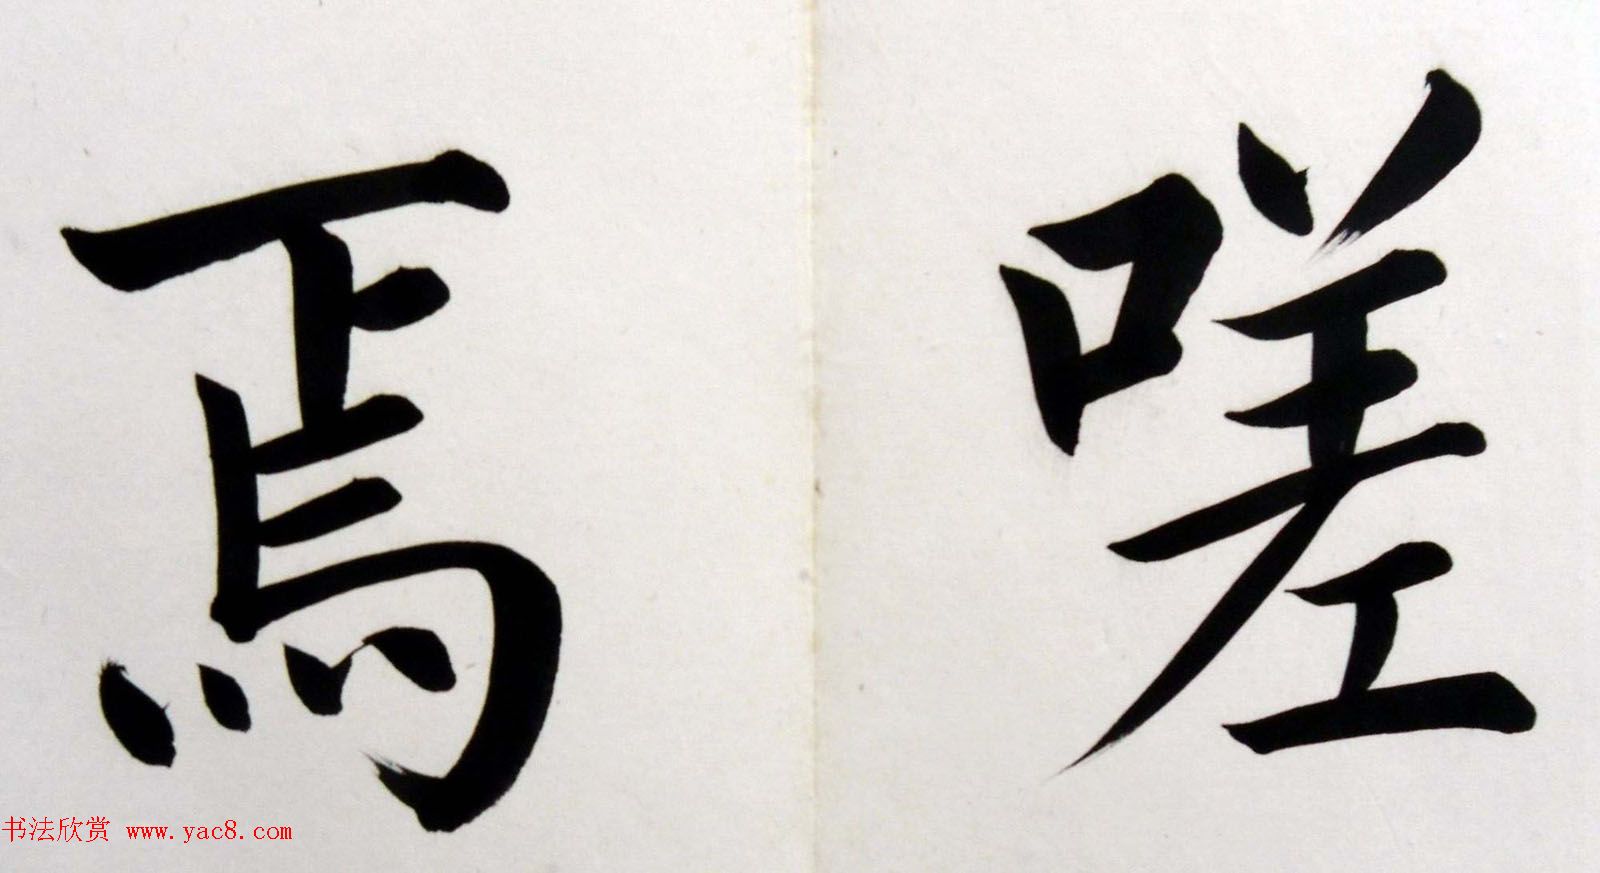 嗟
焉
书法欣赏 www.yac8.com